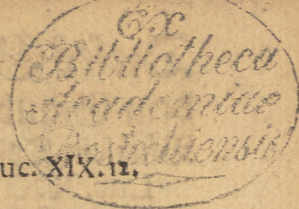 Ex
Bibliotheca
Academiae
Rostochiensis
uc. XIX. 12.